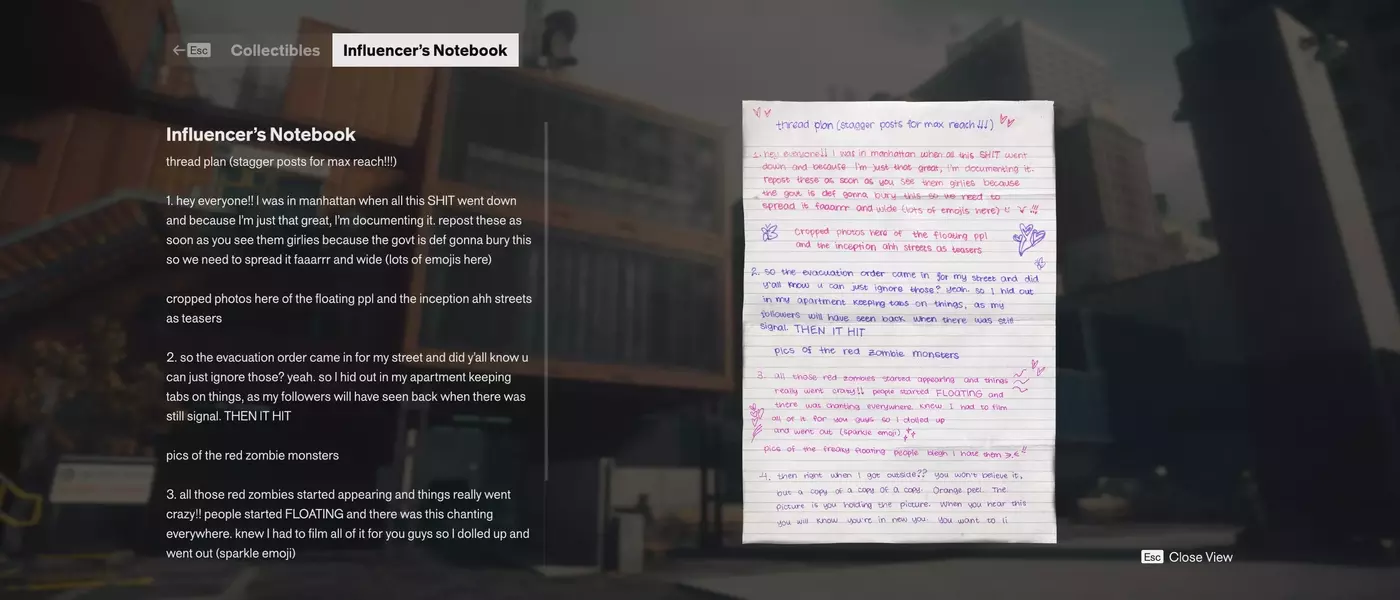 Esc
Collectibles
Influencer's Notebook
Influencer's Notebook
thread plan (stagger posts for max reach!!!)
1. hey everyone!! I was in manhattan when all this SHIT went
down and because I'm just that great, I'm documenting it. repost these as
soon as you see them girlies because the govt is def gonna bury this
so we need to spread it faaarrr and wide (lots of emojis here)
cropped photos here of the floating ppl and the inception ahh streets
as teasers
2. so the evacuation order came in for my street and did y'all know u
can just ignore those? yeah. so I hid out in my apartment keeping
tabs on things, as my followers will have seen back when there was
still signal. THEN IT HIT
pics of the red zombie monsters
3. all those red zombies started appearing and things really went
crazy!! people started FLOATING and there was this chanting
everywhere. knew I had to film all of it for you guys so I dolled up and
went out (sparkle emoji)
thread plan (stagger posts for max reach!!!)
1. hey everyone!! I was in manhattan when all this SHIT went
down and because I'm just that great, I'm documenting it.
repost these as soon as you see them girlies because
the govt is def gonna bury this so we need to
spread it faaarrr and wide (lots of emojis here) !!!
cropped photos here of the floating ppl
and the inception ahh streets as teasers
2. so the evacuation order came in for my street and did
y'all know u can just ignore those? yeah. so I hid out
in my apartment keeping tabs on things, as my
followers will have seen back when there was still
signal. THEN IT HIT
pics of the red zombie monsters
3. all those red zombies started appearing and things
really went crazy!! people started FLOATING and
there was chanting everywhere. knew I had to film
all of it for you guys so I dolled up
and went out (sparkle emoji)
pics of the freaky floating people blegh I hate them !!
4. then right when I got outside?? you won't believe it,
but a copy of a copy of a copy. Orange peel. The
picture is you holding the picture. When you hear this
you will know you're in new you. You want to li
Esc Close View